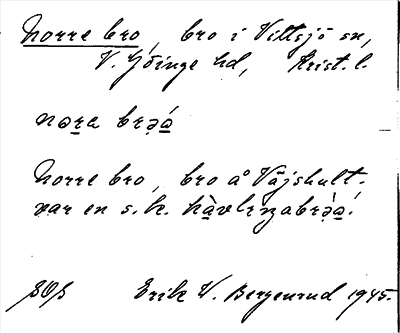 Norre bro, bro i Vittsjö sn,
V. Göinge hd, Krist. l.
nɷra brə̀á
Norre bro, bro å Väjshult.
var en s.k. kàvlɪŋabrə̀á!
SOS Erik W. Bergenrud 1945.